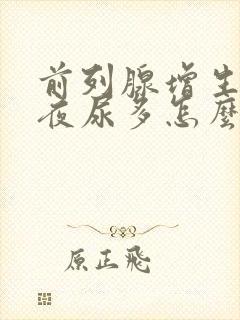 前列腺增生
夜尿多怎麼
原正飛